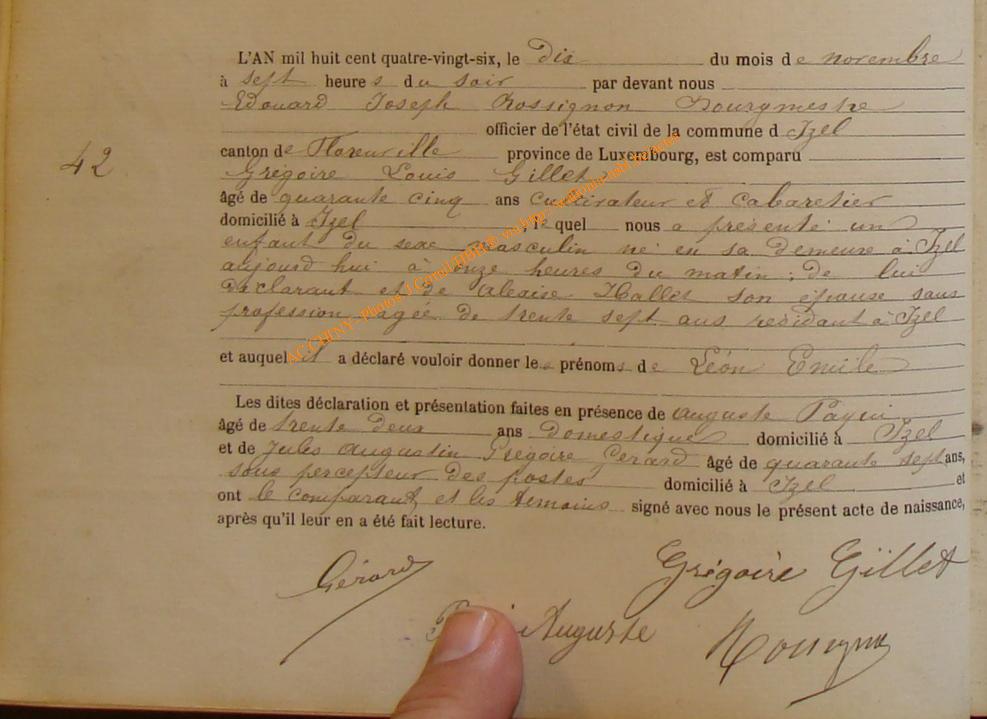 L'AN mil huit cent quatre-vingt-six, le dix du mois de novembre
à sept heures du soir par devant nous
Edouard Joseph Rossignon Bourgmestre
officier de l'état civil de la commune d Izel
42
canton de Florenville province de Luxembourg, est comparu
Grégoire Louis Gillet
âgé de quarante cinq ans cultivateur et cabaretier
domicilié à Izel lequel nous a présenté un
enfant du sexe masculin né en sa demeure à Izel
aujourd hui à onze heures du matin ; de lui
déclarant et de Alexise Hallet son épouse sans
profession agée de trente sept ans residant à Izel
et auquel il a déclaré vouloir donner les prénoms de Léon Emile
Les dites déclaration et présentation faites en présence de Auguste
âgé de trente deux ans domestique domicilié à Izel
et de Jules Augustin Grégoire Gerard âgé de quarante sept ans,
sous percepteur des postes domicilié à Izel et
ont le comparant et les temoins signé avec nous le présent acte de naissance,
après qu'il leur en a été fait lecture.
Gérard
Grégoire Gillet
Auguste